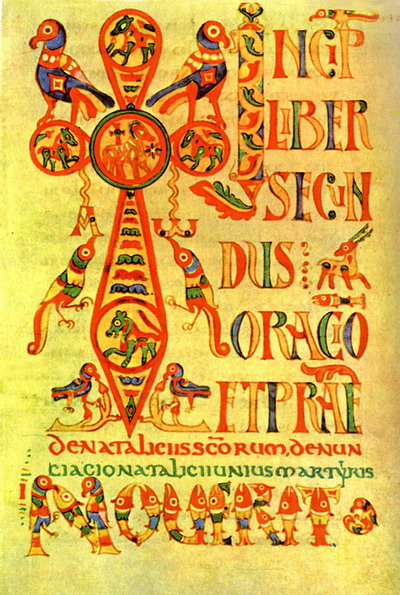 INCIP
LIBER
SECUN
DUS
ORACIO
ET PRAE
de nataliciis scorum, denun
ciacio natalicii unius martyris
NOUERIT